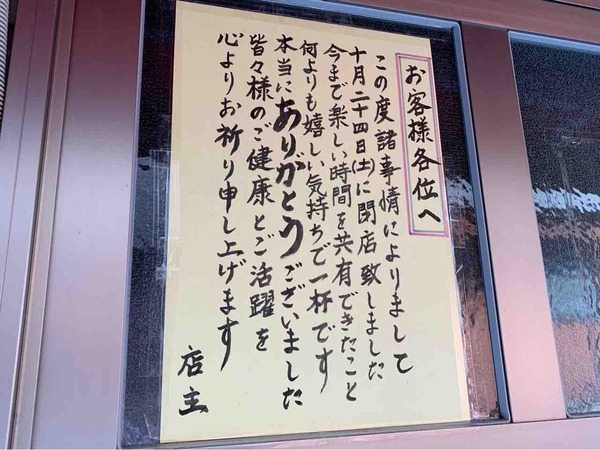 お客様各位へ
この度諸事情によりまして
十月二十四日(土)に閉店致しました
今まで楽しい時間を共有できたこと
何よりも嬉しい気持ちで一杯です
本当にありがとうございました
皆々様のご健康とご活躍を
心よりお祈り申し上げます
店主